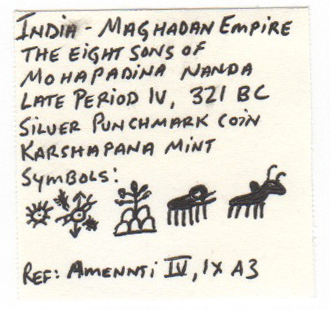 INDIA - MAGHADAN EMPIRE
THE EIGHT SONS OF
MOHAPADINA NANDA
LATE PERIOD IV, 321 BC
SILVER PUNCHMARK COIN
KARSHAPANA MINT
SYMBOLS:
REF: AMENNTI IV, IX A3